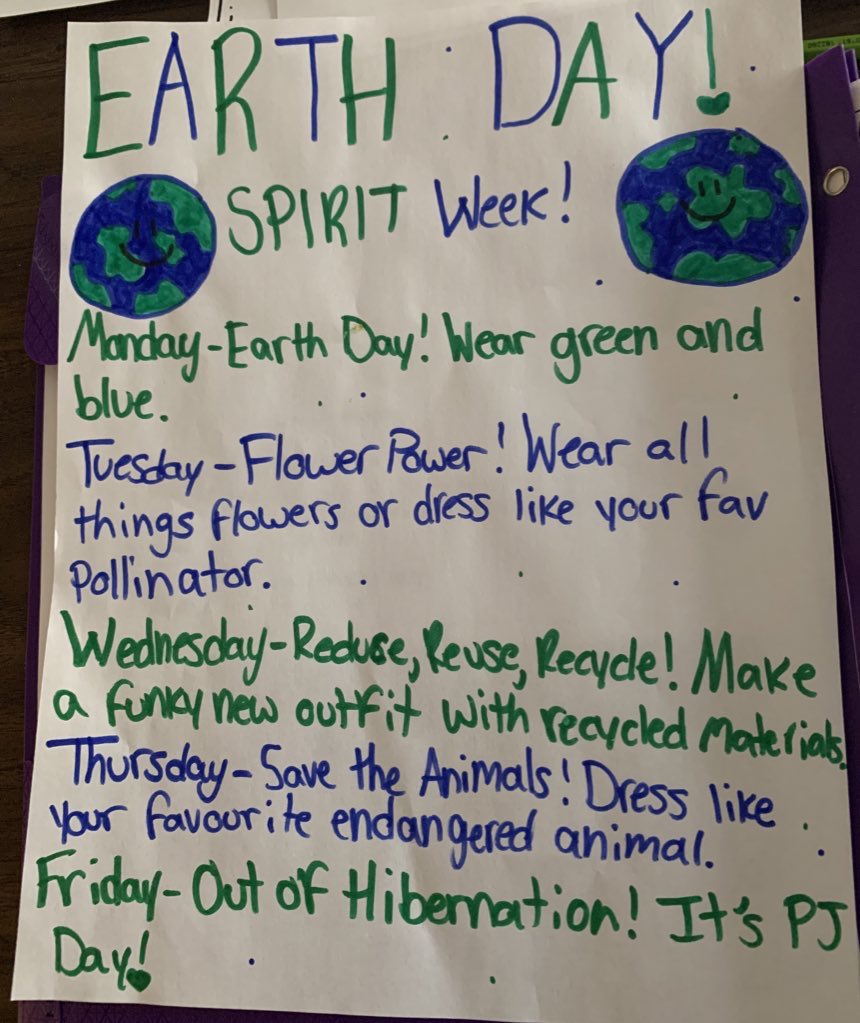 EARTH DAY!
SPIRIT Week!
Monday-Earth Day! Wear green and
blue.
Tuesday-Flower Power! Wear all
things flowers or dress like your fav
Pollinator.
Wednesday-Reduse, Reuse, Recycle! Make
a funky new outfit with recycled materials.
Thursday-Save the Animals! Dress like
your favourite endangered animal.
Friday-Out of Hibernation! It's PJ
Day!